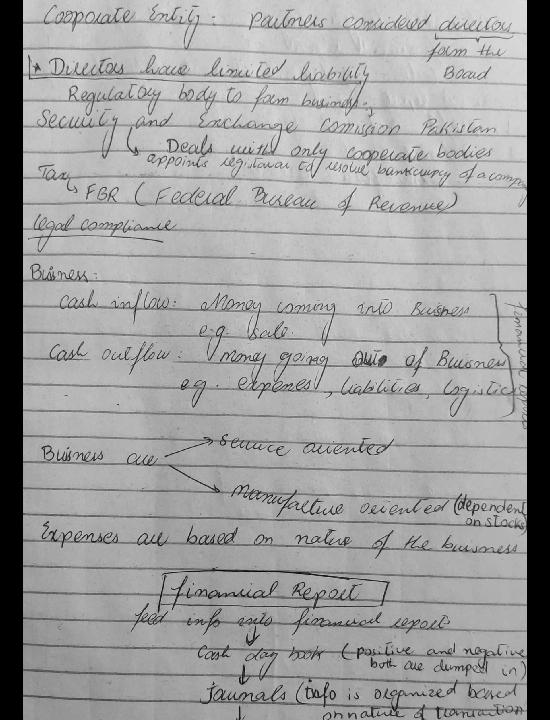 Cooporate Entity: Partners considered directors
form the
Board
* Directors have limited liability
Regulatory body to form business:
Security and Exchange Comission Pakistan
Deals with only cooperate bodies
appoints registarar to resolve bankrupcy of a company
Tax
FBR (Federal Bureau of Revenue)
legal compliance
Business:
Cash inflow: Money coming into Business
e.g. sale.
Cash outflow: money going out of Business
e.g. expenses, liabilities, logistics
financial
Business are
service oriented
manufacture oriented (dependent
on stocks)
Expenses are based on nature of the business
Financial Report
feed info into financial report
Cash day book (positive and negative
both are dumped in)
Jaurnals (info is organized based
on nature of transaction